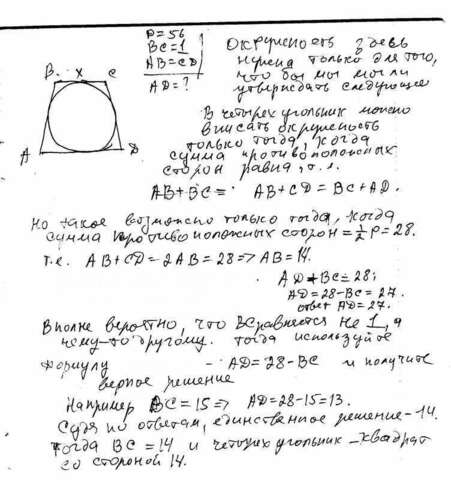 P=56
BC=1
AB=CD
AD=?
B X C
A D
Окружность здесь
нужна только для того,
что бы мы могли
утверждать следующее
В четырехугольник можно
вписать окружность
только тогда, когда
сумма противоположных
сторон равна, т.е.
AB+BC= AB+CD=BC+AD.
Но такое возможно только тогда, когда
сумма противоположных сторон=½P=28.
т.е. AB+CD=2AB=28=>AB=14.
AD+BC=28;
AD=28-BC=27.
ответ AD=27.
Вполне вероятно, что BC равняется не 1, а
чему-то другому. тогда используйте
формулу - AD=28-BC и получите
верное решение
Например BC=15=> AD=28-15=13.
Судя по ответам, единственное решение-14.
Тогда BC=14 и четырехугольник -квадрат
со стороной 14.